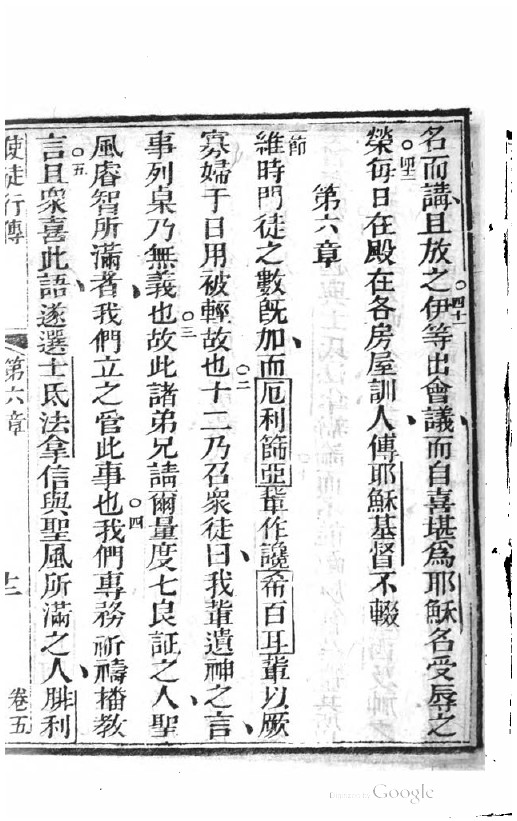 名而講且放之○四十一伊等出會議而自喜堪為耶穌名受辱之
○四二
榮每日在殿在各房屋訓人傳耶穌基督不輟
第六章
一節
維時門徒之數既加而厄利篩亞輩作讒希百耳輩以厥
寡婦于日用被輕故也○二十二乃召眾徒曰我輩遺神之言
事列桌乃無義也○三故此諸弟兄請爾量度七良証之人聖
風睿智所滿者我們立之管此事也○四我們專務祈禱播教
言○五且眾喜此語遂選士氐法拿信與聖風所滿之人腓利
使徒行傳 第六章 十二 卷五
Digitized by Google